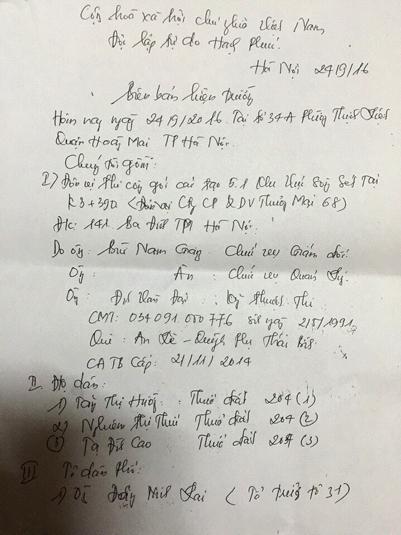 Cộng hoà xã hội chủ nghĩa Việt Nam
Độc lập tự do Hạnh Phúc.
Hà Nội 24/9/16
Biên bản hiện trường
Hôm nay ngày 24/9/2016. Tại số 34A Phường Thịnh Liệt
Quận Hoàng Mai TP Hà Nội.
Chúng tôi gồm:
I) Đơn vị thi công gói cải tạo 5.1 Khu Vực Sông Sét Tại
K3+390 (Đơn vị Cty CP & DV Thương Mại 68)
Đ/c: 141 Ba Đình TP Hà Nội.
Do ông: Bùi Nam Chức vụ Giám đốc.
Ông: Ân: Chức vụ Quản lý.
Ông: Đại: Kỹ Thuật Thi
CMT: 034 091 000 776 sinh ngày 2/5/1991
Quê: An - Quỳnh Phụ Thái Bình
CA TB Cấp: 21/11/2014
II. Hộ dân:
1) Thị Thuở đất 204 (1)
2) Nghiêm Thị Thuở đất 204 (2)
3) Tạ Đình Cao Thuở đất 204 (3)
III Tổ dân phố:
1) Ông (Tổ trưởng tổ 31)